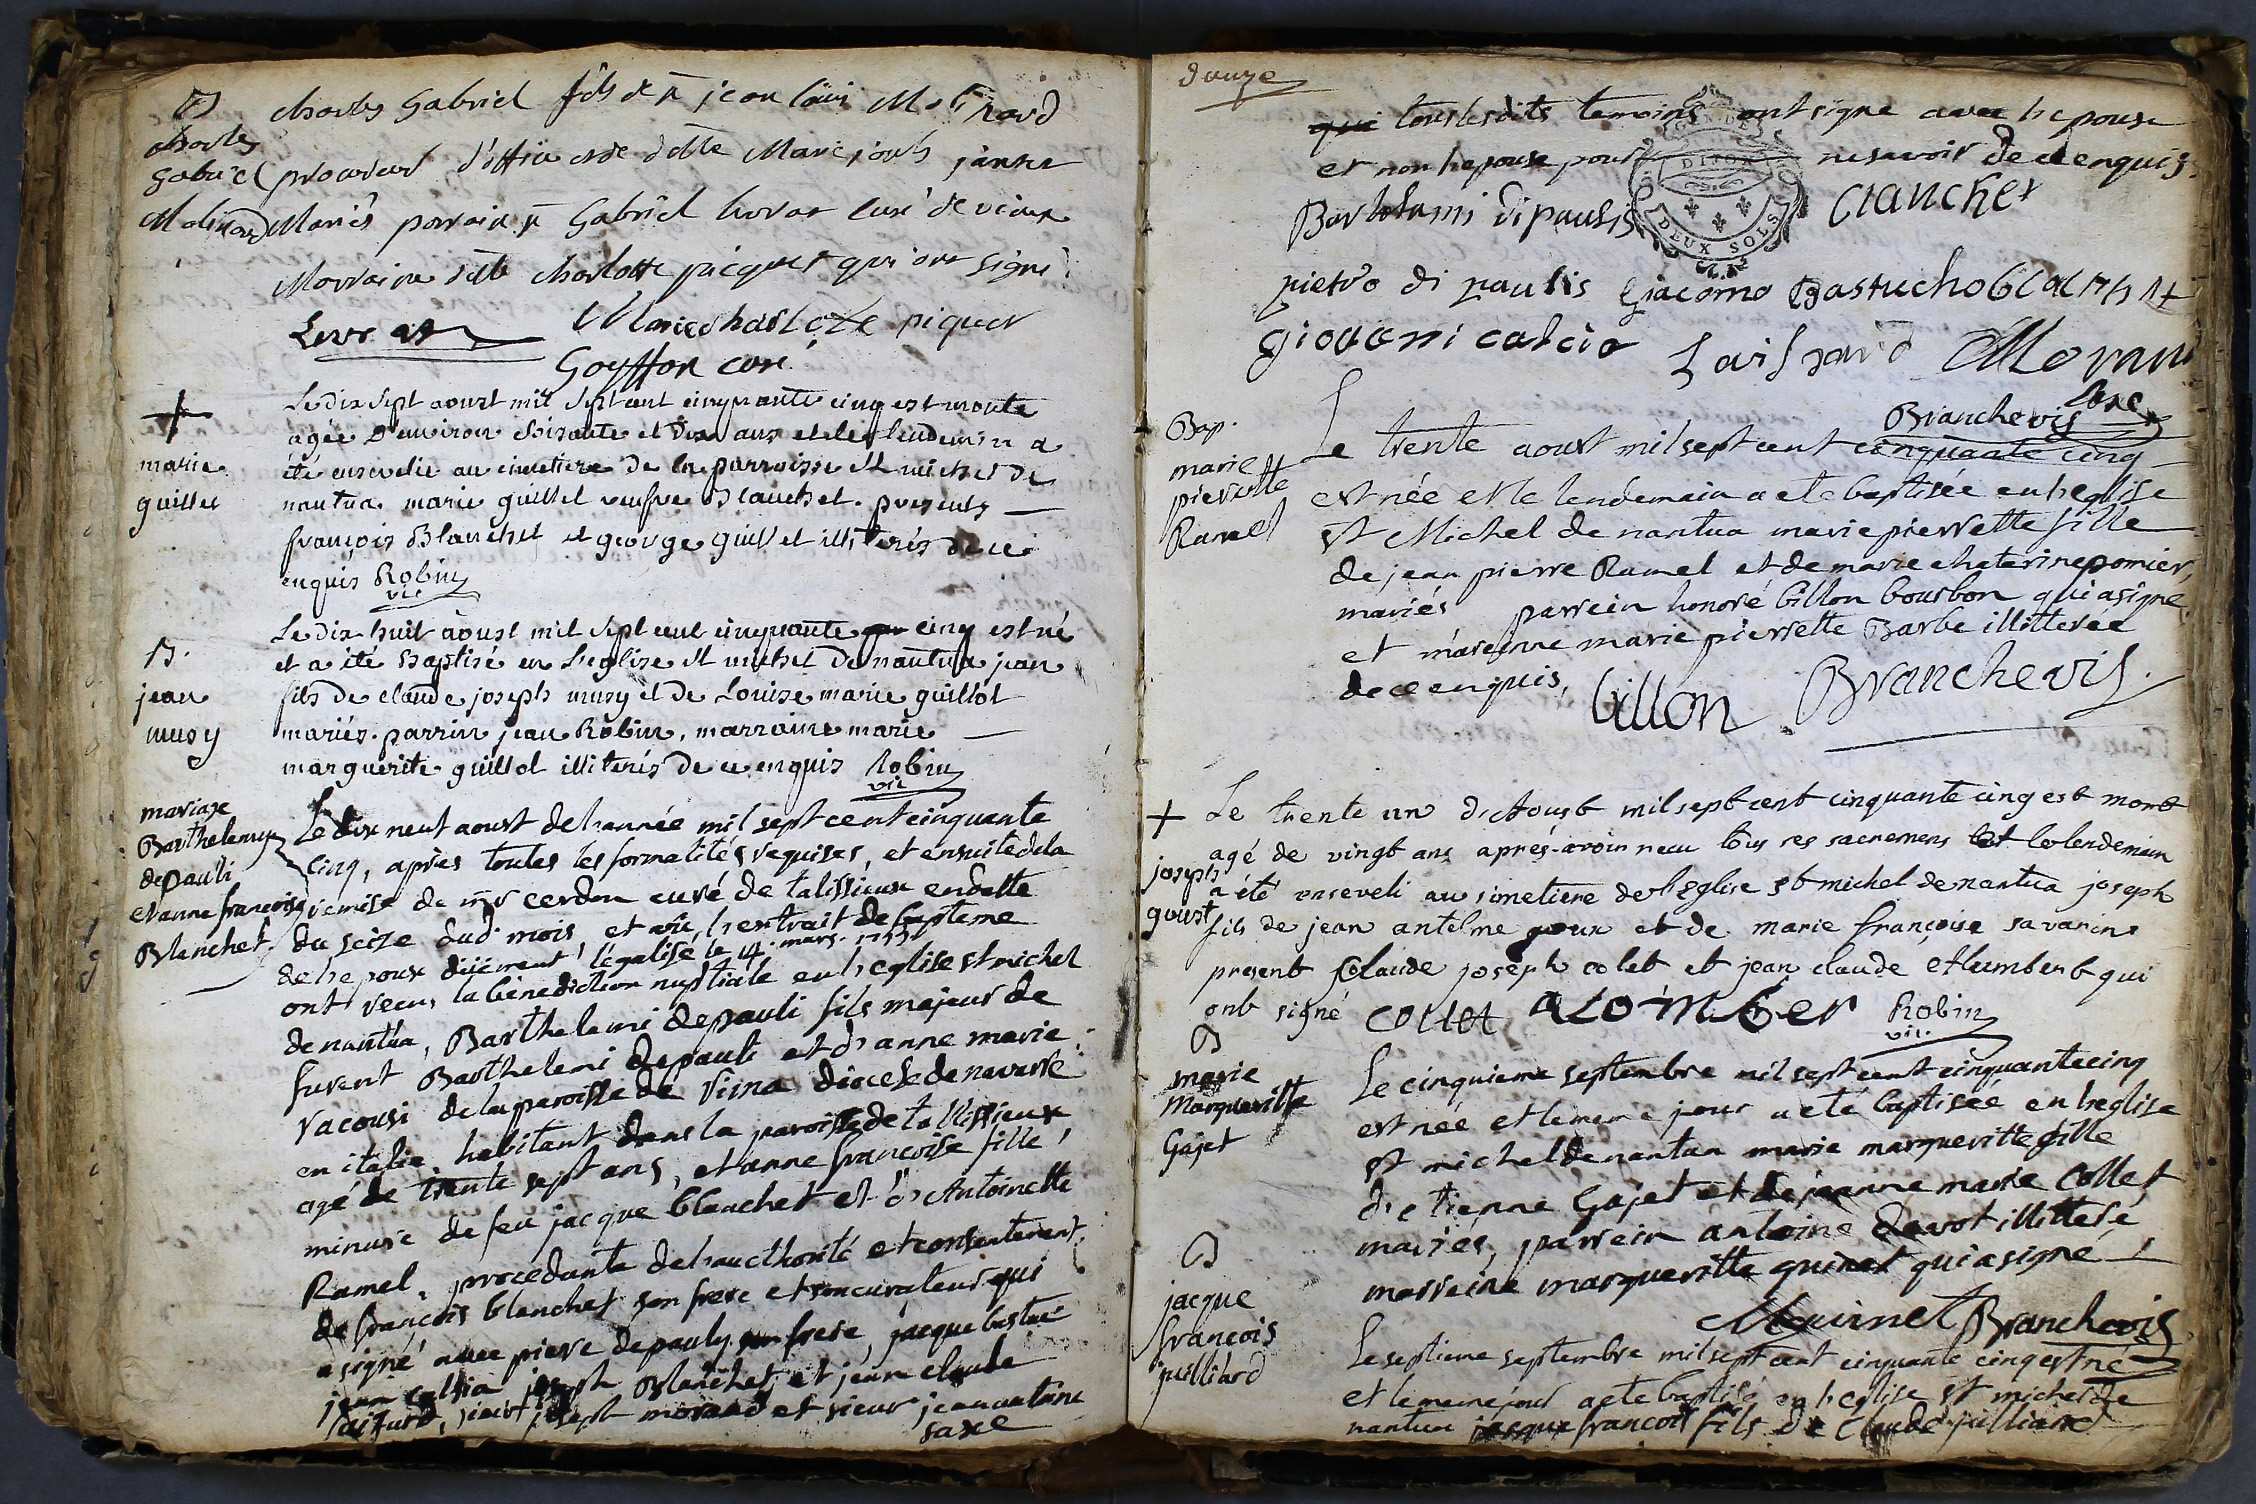 B
charles
Gabriel
Molinard
charles Gabriel fils de jean loüis Molinard
procureur d'office et de dette Marie
Mariés parrain Gabriel curé de vieux
Marraine dlle charlotte picquet qui ont signé
Marie charlote piquet
Goyffon curé
+
marie
guillet
Le dix sept aoust mil sept cent cinquante cinq est morte
agée d'environ soisante et dix ans et le lendemain a
été ensevelie au cimetiere de la parroisse st michel de
nantua marie guillet veufve Blanchet. presents
françois Blanchet et george guillet illiterés de ce
enquis Robin
vic
B.
jean
musy
Le dix huit aoust mil sept cent cinquante cinq est né
et a été baptisé en l'eglise st michel de nantua jean
fils de claude joseph musy et de Louise marie guillot
mariés. parrin jean Robin, marraine marie
marguerite guillot illiterés de ce enquis Robin
vic
mariage
Barthelemy
depauli
et anne francoise
Blanchet
Le dix neuf aoust de l'année mil sept cent cinquante
cinq, après toutes les formalités requises, et ensuite de la
remise de mr cerdon curé de talissieux en datte
du seize dud. mois, et vû l'extrait de bapteme
de l'epoux düement légalisé le 14 mars
ont recu la bénédiction nuptiale en l'eglise st michel
de nantua, Barthelemi depauli fils majeur de
furent Barthelemi depauli et d'anne marie
vacousi de la paroisse de viina diocese de navarre
en italie habitant dans la paroisse de tallissieux
agé de trente sept ans, et anne francoise fille
minure de feu jacque blanchet et d'Antoinette
Ramel, procédante de l'aucthorité et consentement
de françois blanchet son frere et son curateur qui
a signé avec pierre depauly son frere, jacque bastué
jean calsia joseph Blanchet et jean claude
joseph morand et sieur jean antoine
saxe
douze
que tous lesdits temoins ont signe avec l'epoux
et non l'epouse pour ne savoir de ce enquis.
DIJON
DEUX SOLS
Bartolami di paulis
Clanchet
pietro di paulis Giacomo Bastucho blanchet
giovani calcia Morand
Saxe
Branchevis
Bap.
marie
pierrette
Ramel
Le trente aoust mil sept cent cinquante cinq
est née et le lendemain a eté baptisée en l'eglise
st Michel de nantua marie pierrette fille
de jean pierre Ramel et de marie chaterine pomier,
mariés parrein honoré billon bourbon qui a signe
et mareinne marie pierrette Barbe illitterée
de ce enquis,
billon Branchevis.
+
joseph
goust
Le trente un d'Aoust mil sept cent cinquante cinq est mort
agé de vingt ans aprés avoir recu tous ses sacremens et le lendemain
a été enseveli au simetiere de l'eglise st michel de nantua joseph
fils de jean antelme goux et de marie françoise savarin
present claude joseph colet et jean claude etlumbert qui
ont signé collet aLomber Robin
vic.
B
marie
Margueritte
Gajet
Le cinquieme septembre mil sept cent cinquante cinq
est née et le meme jour a eté baptisée en l'eglise
st michel de nantua marie margueritte fille
d'etienne Gajet et de jeanne marie Collet
mariés, parrein antoine davot illitteré,
marreine margueritte guinet qui a signé
Mguinet Branchevis
B
jacque
françois
juilliard
Le septieme septembre mil sept cent cinquante cinq est né
et le meme jour a eté baptisé en l'eglise st michel de
nantua jacque francois fils de Claude juilliard